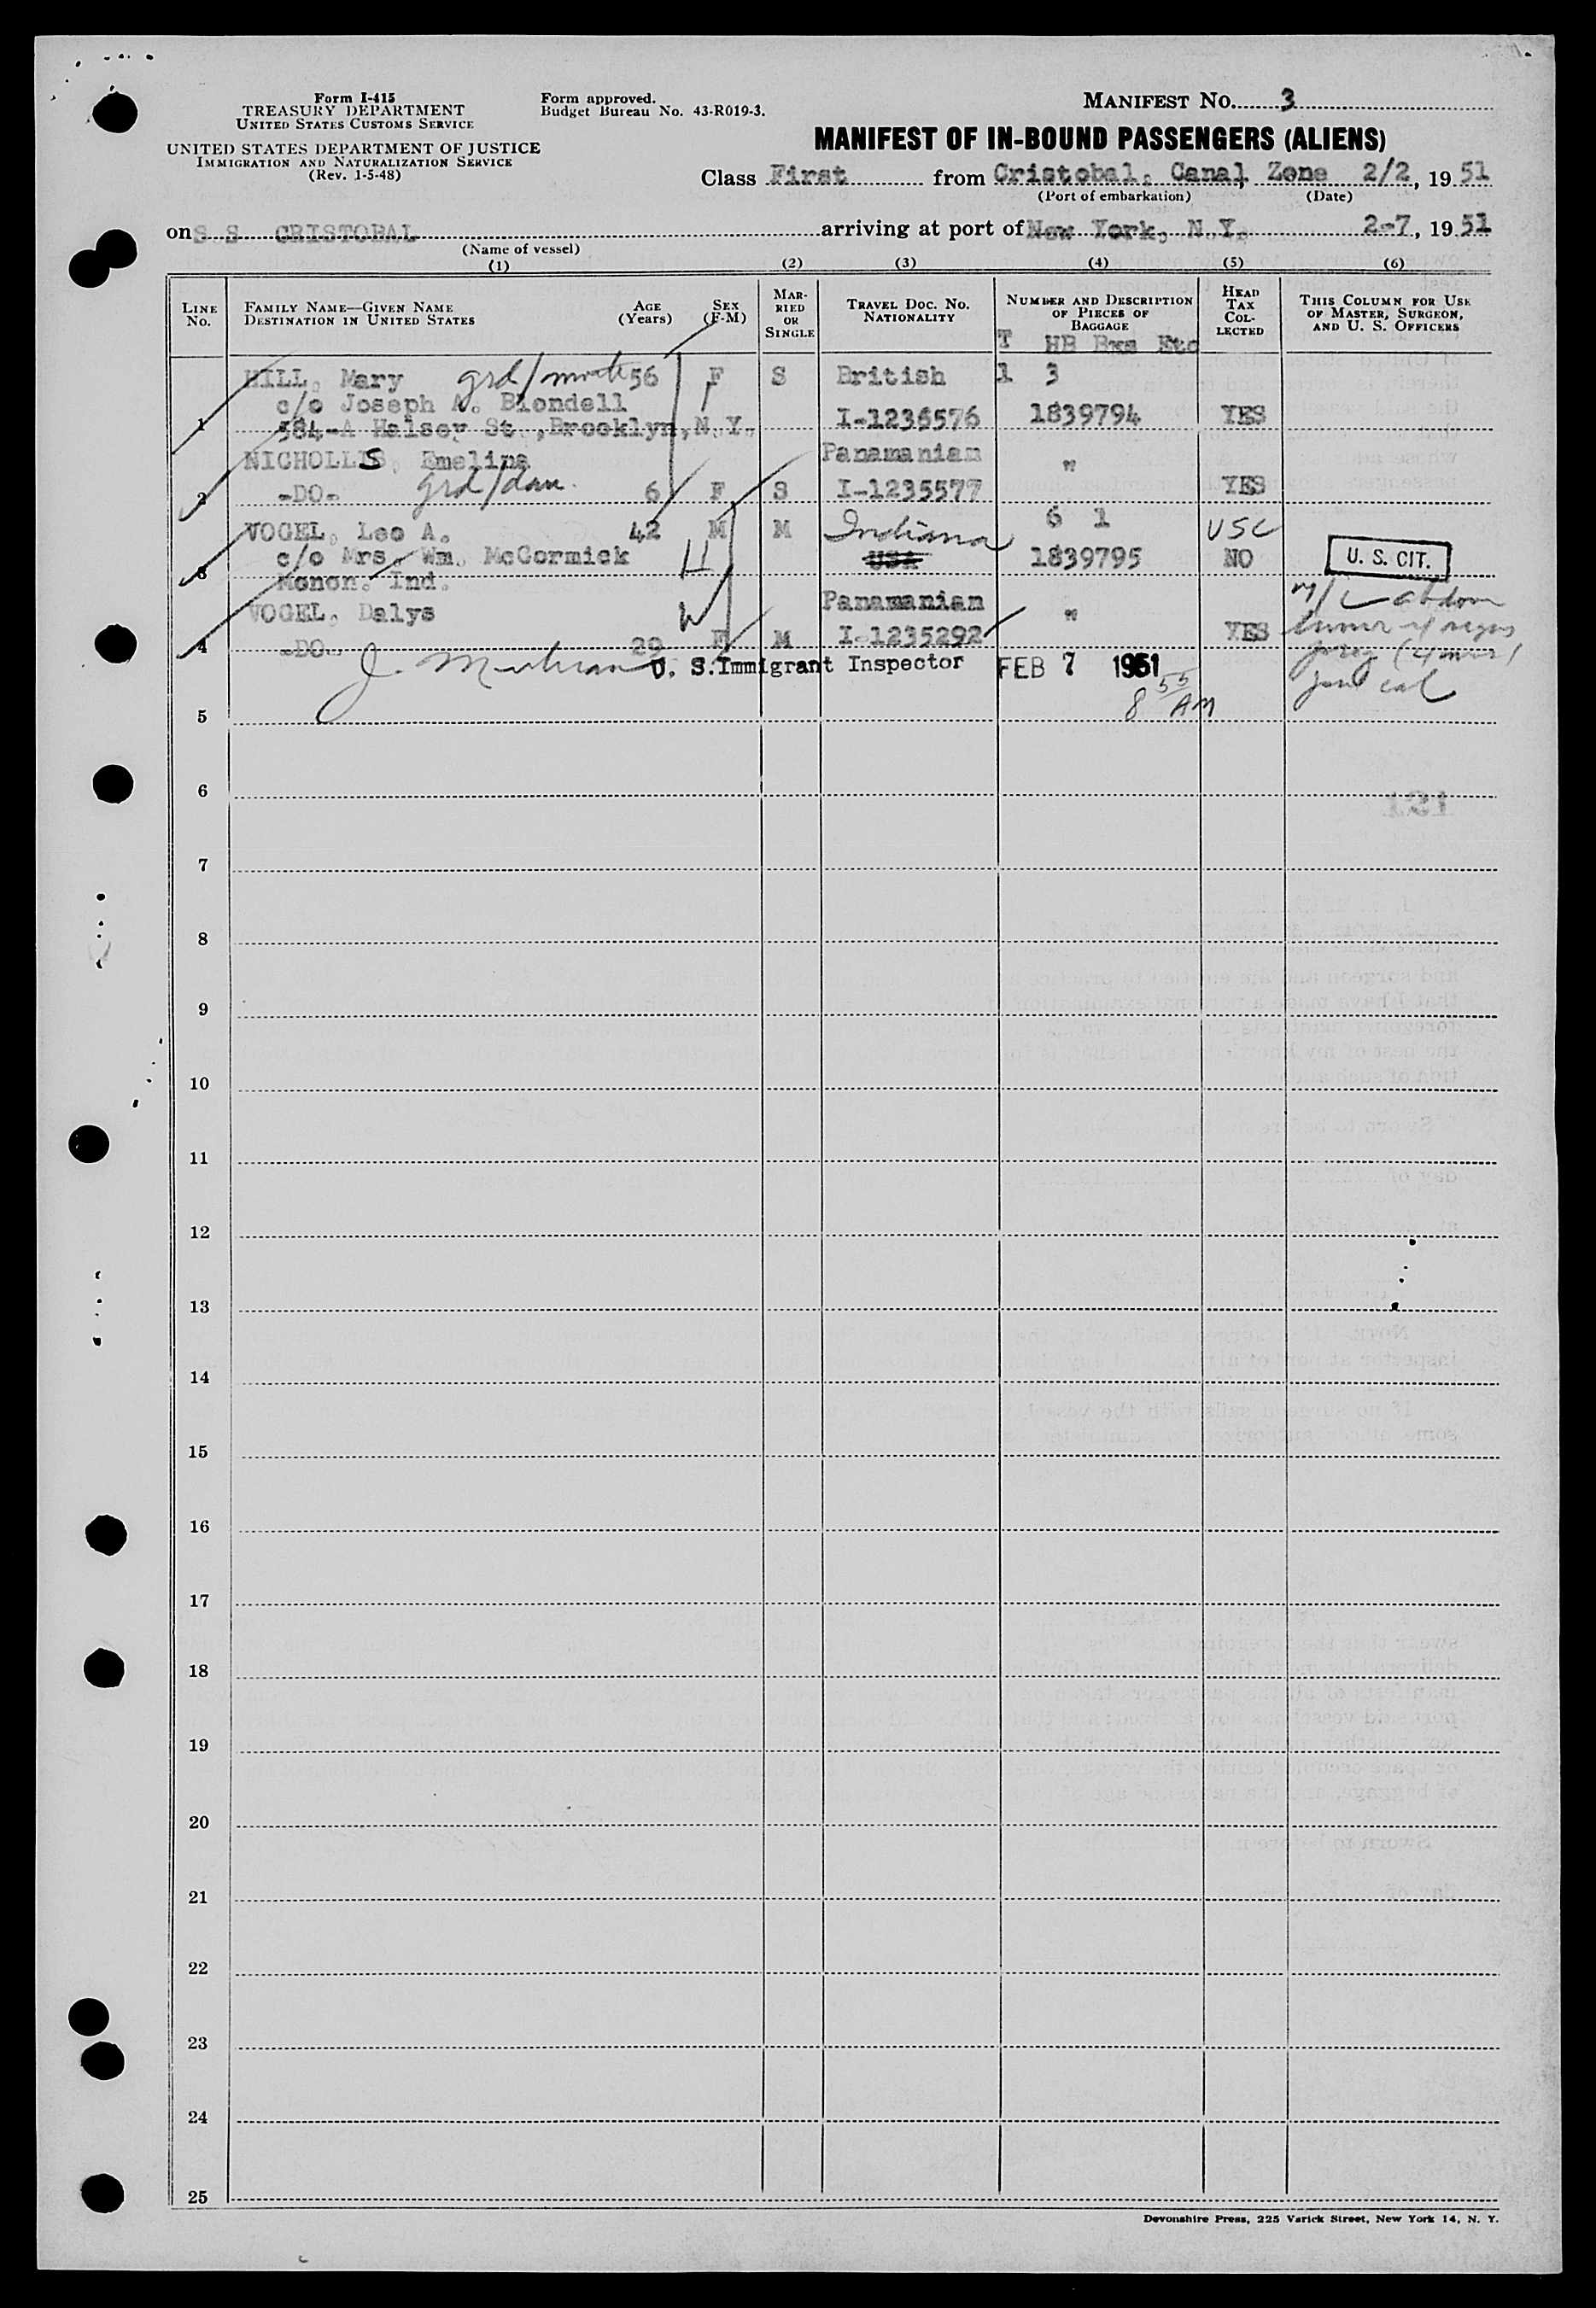 Form I-415
TREASURY DEPARTMENT
UNITED STATES CUSTOMS SERVICE
UNITED STATES DEPARTMENT OF JUSTICE
IMMIGRATION AND NATURALIZATION SERVICE
(Rev. 1-5-48)
Form approved.
Budget Bureau No. 43-R019-3.
MANIFEST NO. 3
MANIFEST OF IN-BOUND PASSENGERS (ALIENS)
Class First from Cristobal, Canal Zone 2/2, 1951
(Port of embarkation) (Date)
on S S CRISTOBAL arriving at port of New York, N.Y. 2-7, 1951
(Name of vessel)
(1) (2) (3) (4) (5) (6)
LINE NO.
FAMILY NAME—GIVEN NAME
DESTINATION IN UNITED STATES
AGE (Years)
SEX (F-M)
MARRIED OR SINGLE
TRAVEL DOC. NO. NATIONALITY
NUMBER AND DESCRIPTION OF PIECES OF BAGGAGE
T HB Bxs Etc
HEAD TAX COLLECTED
THIS COLUMN FOR USE OF MASTER, SURGEON, AND U. S. OFFICERS
HILL, Mary grd/moth 56 F S British 1 3
c/o Joseph A. Blondell
1 584-A Halsey St.,Brooklyn,N.Y. I-1236576 1839794 YES
NICHOLLS, Emelina Panamanian "
2 -DO- grd/dau. 6 F S I-1235577 YES
VOGEL, Leo A. 42 M M Indiana 6 1 USC
c/o Mrs. Wm. McCormick H USA 1839795 NO U. S. CIT.
3 Monon, Ind.
VOGEL, Dalys W Panamanian "
4 -DO- 29 F M I-1235292 YES
abdom
preg (4 mos)
U. S. Immigrant Inspector FEB 7 1951
8 55 AM
5
6
131
7
8
9
10
11
12
13
14
15
16
17
18
19
20
21
22
23
24
25
Devonshire Press, 225 Varick Street, New York 14, N. Y.